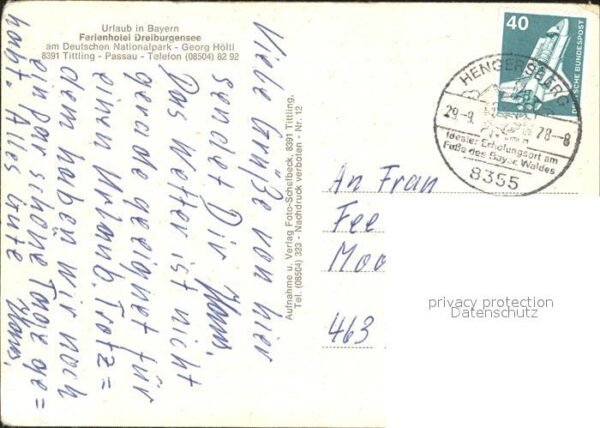 Urlaub in Bayern
Ferienhotel Dreiburgensee
am Deutschen Nationalpark - Georg Höltl
8391 Tittling - Passau - Telefon (08504) 82 92
Viele Grüße von hier
sendet Dir Hans.
Das Wetter ist nicht
gerade geeignet für
einen Urlaub. Trotz=
dem haben wir noch
ein par schöne Tage ge=
habt. Alles Gute
Hans.
Aufnahme u. Verlag Foto-Schelbeck, 8391 Tittling,
Tel. (08504) 323 - Nachdruck verboten - Nr. 12
40
DEUTSCHE BUNDESPOST
HENGERSBERG
29.-9. 78.-8
Idealer Erholungsort am
Fuße des Bayer. Waldes
8355
An Frau
Fee
Moo
463
privacy protection
Datenschutz